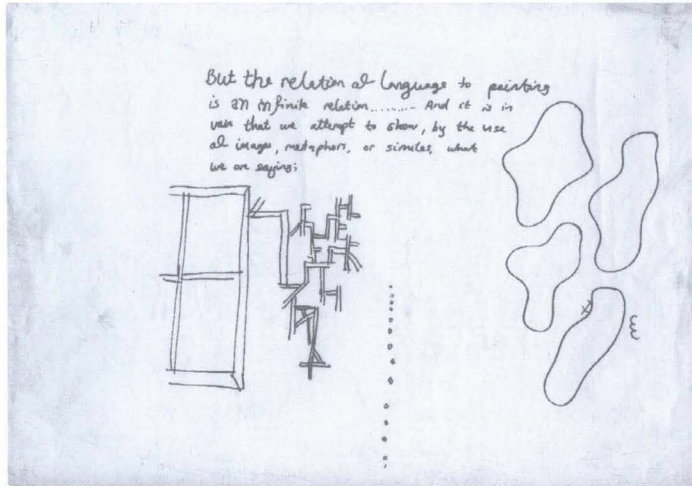 But the relation of language to painting
is an infinite relation......... And it is in
vain that we attempt to show, by the use
of images, metaphors, or similes, what
we are saying;